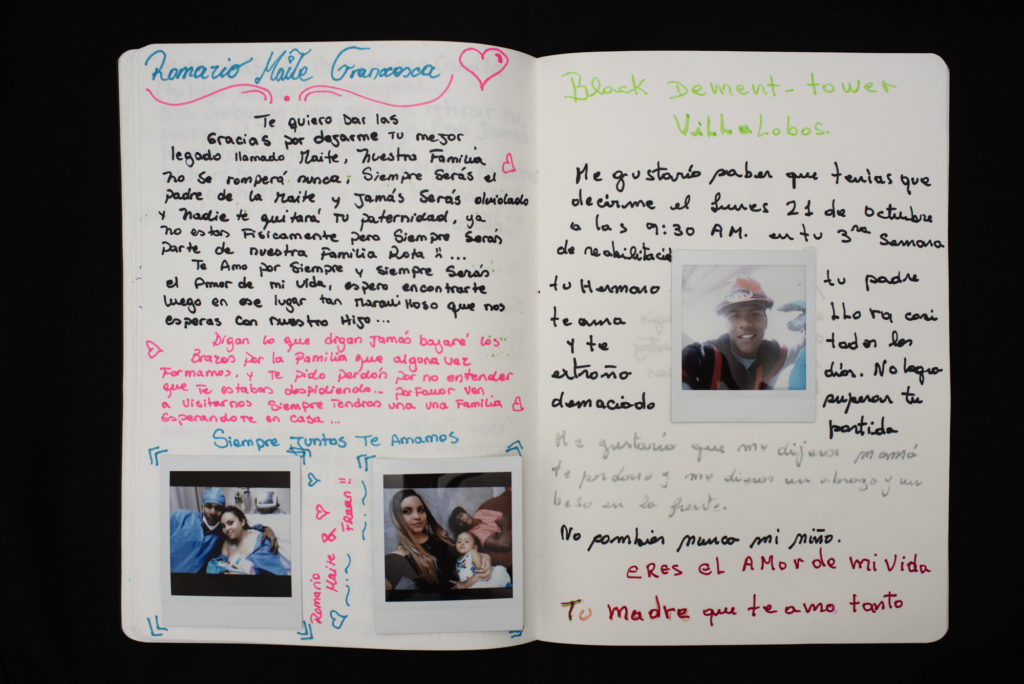 Romario Maite Francesca
Te quiero Dar las
Gracias por dejarme tu mejor
legado llamado Maite, Nuestra Familia
No se romperá nunca; Siempre Serás el
padre de la Maite y Jamás Serás olvidado
y Nadie te quitará Tu paternidad, ya
no estas Fisicamente pero Siempre Serás
Parte de nuestra Familia Rota !! ...
Te Amo por Siempre y siempre Serás
el Amor de mi vida, espero encontrarte
luego en ese lugar tan Maravilloso que nos
esperas con nuestro Hijo...
Digan lo que digan Jamás bajaré los
Brazos por la Familia que alguna vez
Formamos, y te pido perdón por no entender
que te estabas despidiendo... por Favor ven
a Visitarnos Siempre Tendras una una Familia
Esperandote en casa ...
Siempre Juntos Te Amamos
Romario
Maite &
FRAAN !!
Black Dement-tower
Villalobos.
Me gustaría saber que tenias que
decirme el Lunes 21 de octubre
a las 9:30 AM. en tu 3ra Semana
de rehabilitació
tu Hermano
te ama
y te
extraño
demaciado
tu padre
LLora casi
todos los
días. No logro
superar tu
partida
Me gustaría que me dijeras mamá
te perdono y me dieras un abrazo y un
beso en la frente.
No cambias nunca mi niño.
eres el AMor de mi Vida
Tu madre que te amo tanto